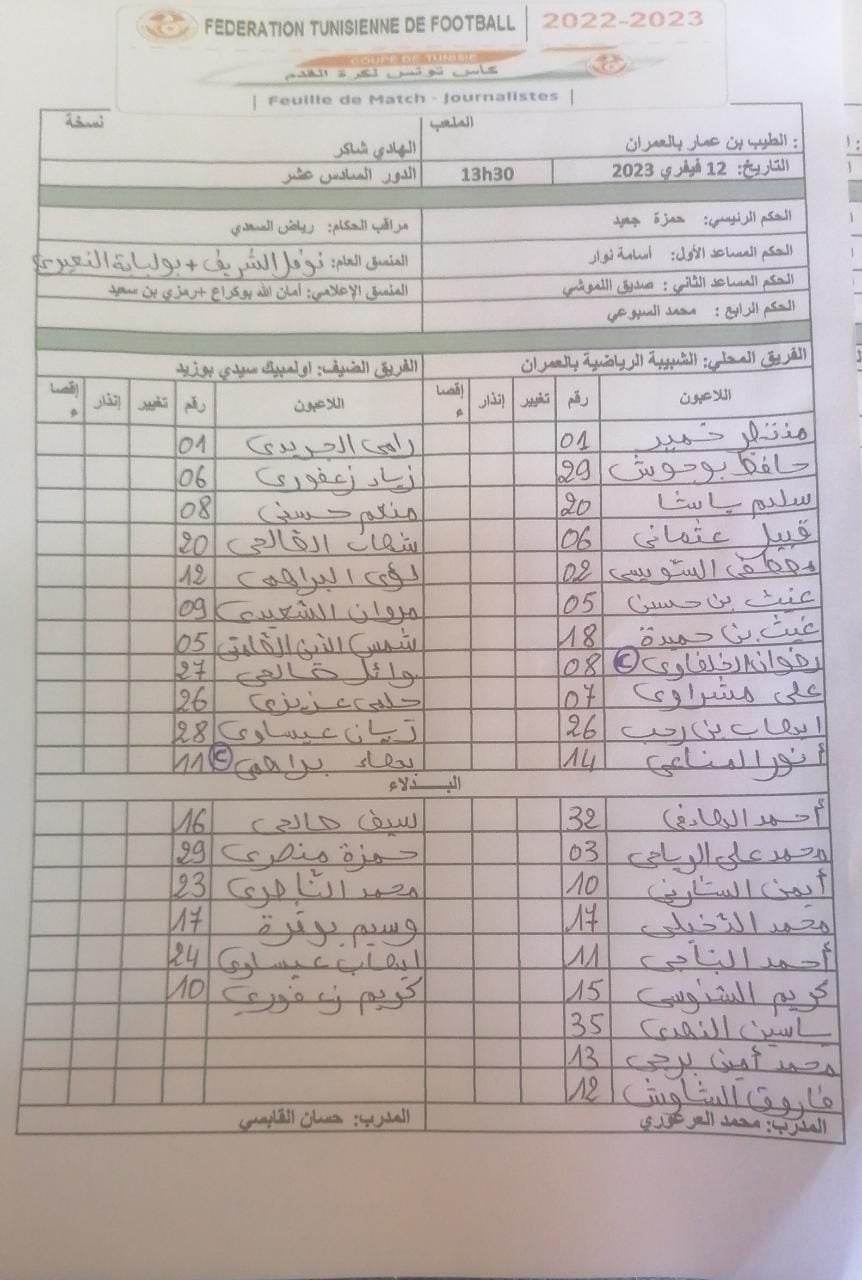 FEDERATION TUNISIENNE DE FOOTBALL | 2022-2023
COUPE DE TUNISIE
كاس تونس لكرة القدم
| Feuille de Match - Journalistes |
الملعب نسخة
: الطيب بن عمار بالعمران الهادي شاكر
التاريخ: 12 فيفري 2023 13h30 الدور السادس عشر
الحكم الرئيسي: حمزة جعيد مراقب الحكام: رياض الصعدي
الحكم المساعد الأول: أسامة نوار المنسق العام: نوفل الشريف + بولبابة
الحكم المساعد الثاني : صديق اللموشي المنسق الإعلامي: أمان الله بوكراع +رمزي بن سعيد
الحكم الرابع : محمد السبوعي
الفريق المحلي: الشبيبة الرياضية بالعمران الفريق الضيف: اولمبيك سيدي بوزيد
اللاعبون رقم تغيير إنذار إقصاء اللاعبون رقم تغيير إنذار إقصاء
منتظر خمير 01 رامي الجريدي 01
حافظ بوحوش 29 زياد زعفوري 06
سليم باشا 20 منعم حسني 08
قبيل عثماني 06 شهاب الصالحي 20
مصطفى السويسي 02 لؤي البراهمي 12
غيث بن حسن 05 مروان الشعيبي 09
غيث بن حميدة 18 شمس الدين 05
رضوان الخلفاوي C 08 وائل صالحي 27
علي مشراوي 07 حلمي عزيزي 26
ايهاب بن رجب 26 زيان عيساوي 28
أنور المناعي 14 بهاء براهمي C 11
البـــدلاء
أحمد الهادفي 32 سيف صالحي 16
محمد علي الرياحي 03 حمزة منصري 29
أيمن الشارني 10 محمد الناصري 23
محمد الدخيلي 17 وسيم بوقرة 17
أحمد الباجي 11 ايهاب عيساوي 24
كريم السنوسي 15 كريم زعفوري 10
ياسين النهدي 35
محمد أمين برجي 13
فاروق الشاوش 12
المدرب: محمد العرعوري المدرب: حسان القابسي